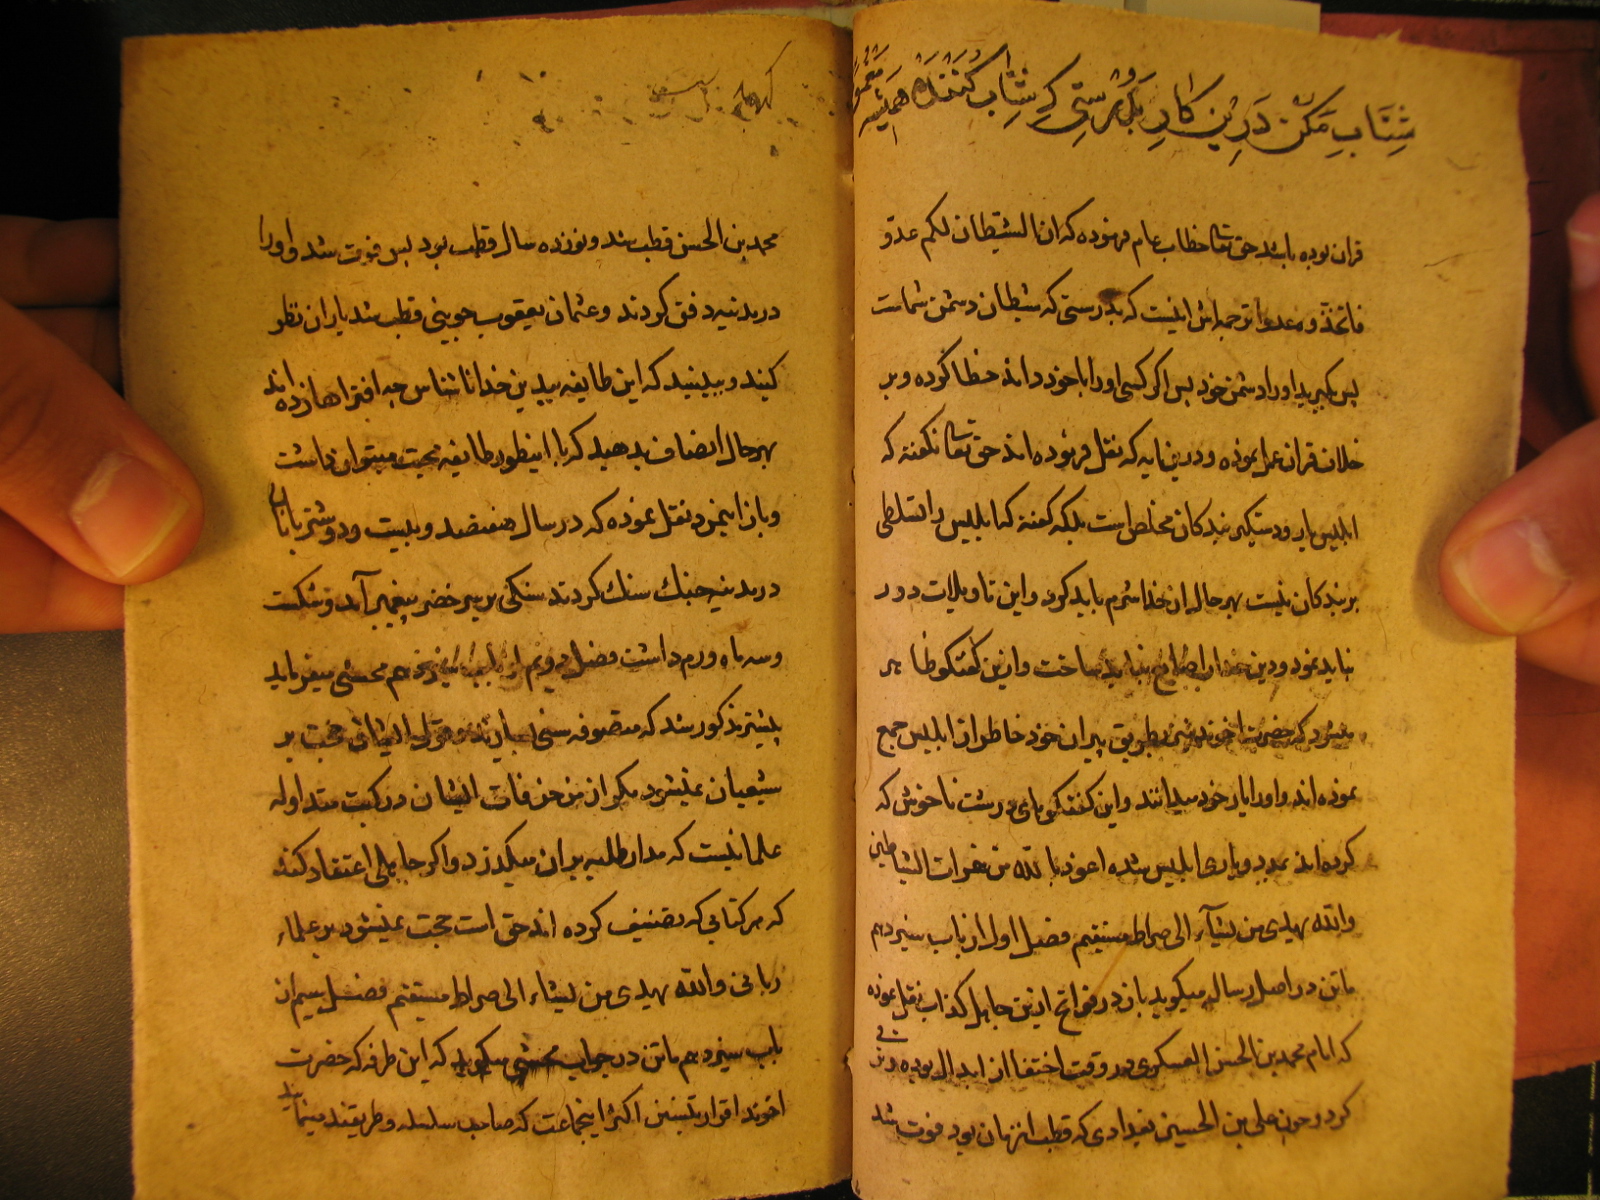 شِتَابِ مَکُن دَرِین کارِ بَدُرُستِی کِ شِتاب کُنَنَدَه هَمِیشِه
قران بوده باشد حق تعا خطاب عام فرموده که ان الشیطان لکم عدوّ
فاتخذوه عدوا ترجمه اش اینست که بدرستی که شیطان دشمن شماست
پس بگیرید اورا دشمن خود پس اگر کسی اورا با خود داند خطا کرده و بر
خلاف قران عمل نموده و درین نایه که نقل فرموده اند حق تعا نکفته که
ابلیس یار و دستگیر بندکان مخلص است بلکه کفته که ابلیس را تسلطی
بر بندکان نیست بهر حال از خدا شرم باید کرد و این تاویلات دور
نباید نمود و دین خدارا ضایع نباید ساخت و ازین کفتکوها
که حضرت اخوند نیز بطریق پیران خود خاطر از ابلیس جمع
نموده اند و اورا یار خود میدانند و این کفتکوهای درشت ناخوش که
کرده اند بمدد و یاری ابلیس شده اعوذ بالله من همزات الشیاطین
والله یهدی من یشآء الی صراط مستقیم فصل اول از باب سیزدهم
ماتن در اصل رساله میکوید باز در فواتح ازین جاهل کذاب نقل نموده
که امام محمد بن الحسن العسکری در وقت اختفا از ابدال بوده و
کرد و چون علی بن الحسین بغدادی که قطب انزمان بود فوت شد
محمد بن الحسن قطب شد و نوزده سال قطب بود پس فوت شد و اورا
در مدینه دفن کردند و عثمان یعقوب جوینی قطب شد یاران نظر
کنید و ببینید که این طایفه بیدین خدا ناشناس چه افتراها زده اند
بهر حال انصاف بدهید که با اینطور طایفه محبت میتوان داشت
و باز این نقل نموده که در سال هفتصد و بیست و دو شتربانان
در مدینه جنك سنك کردند سنکی بر سر خضر پیغمبر آمد و شکست
و سه ماه ورم داشت فصل دویم از باب سیزدهم محشی میفرماید
پیشتر مذکور شد که متصوفه سنی بسیارند و قول ایشان حجت بر
شیعیان نمیشود مکر از مزخرفات ایشان در کتب متداوله
علما نیست که مدار طلبه بران میکذرد و اکر جاهلی اعتقاد کند
که هر کتابی که تصنیف کرده اند حق است حجت نمیشود بر علماء
ربانی والله یهدی من یشاء الی صراط مستقیم فصل سیم از
باب سیزدهم ماتن در جواب محشی میکوید که این طرفه که حضرت
اخوند اقرار بتسنن اکثر اینجماعت که صاحب سلسله و طریقند مینماید